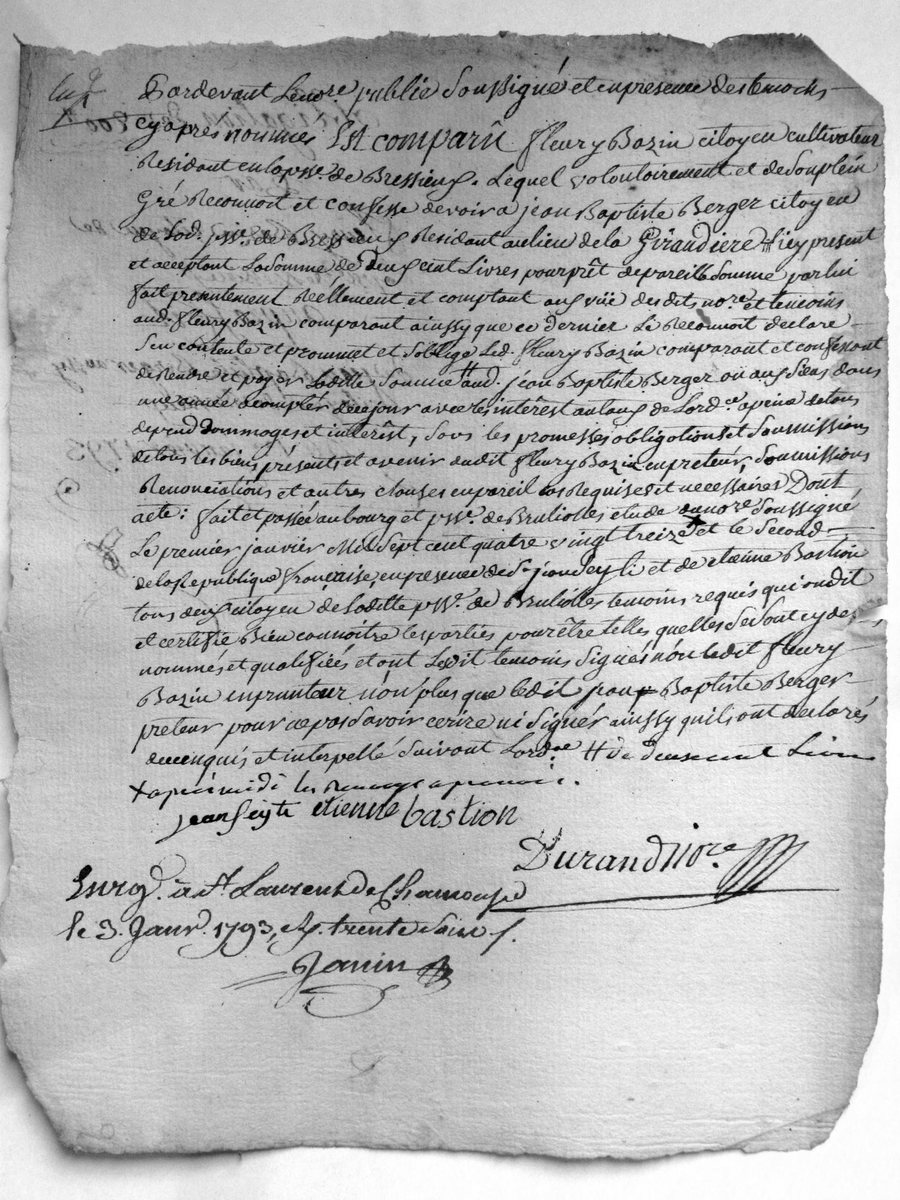 Pardevant Le no.re public Soussigné et en presence des temoins
cy apres nommés Est comparû fleury Bazin citoyen cultivateur
Residant en la p.sse de Bressieux. Lequel volontoirement et de Son plein
Gré Reconnoit et confesse devoir à jean Baptiste Berger citoyen
de lad. p.sse de Bressieux Residant au lieu de la Girandiere icy present
et acceptant La Somme de deux cent Livres pour prêt de pareille Somme par lui
fait presentement Réellement et comptant aux vüe des dits no.re et temoins
aud. fleury Bazin comparant ainssy que ce dernier Le Reconnoit declare
S'en contente et prommet et S'oblige Led. fleury Bazin comparant et confessant
de Rendre et payer Laditte Somme # aud. jean Baptiste Berger ou aux Siens dans
une année à compter de ce jour avec les interêst au taux de L'ord.ce à peine de tous
depend dommages et interêst, Sous les promesses obligations et Soumissions
de tous les biens presents et avenir dudit fleury Bazin Soumissions
Renonciations et autres clauses en pareil cas Requises et necessaires Dont
acte : fait et passé au bourg et p.sse de Brullioles etude du no.re Soussigné
Le premier janvier Mil Sept cent quatre vingt treize et le Second
de la Republique française, en presence de S.r jean et de etienne Bastion
tous deux citoyen de Laditte p.sse de Brullioles temoins requis qui ont dit
et certifié Bien connoitre les parties pour être telles quelles Se Sont cy des
nommés et qualifiées et ont Lesdit temoins Signés non ledit fleury
Bazin emprunteur non plus que ledit jean Baptiste Berger
preteur pour ne pas Savoir ecrire ni Signér ainssy qu'ils ont declarés
de ce enquis et interpellé Suivant L'ord.ce # de deux cent Livres
+ apres midi
jean etienne bastion
Durand no.re
Enrg. à S.t Laurent de Chamousset
le 3. Janv. 1793,
Janin